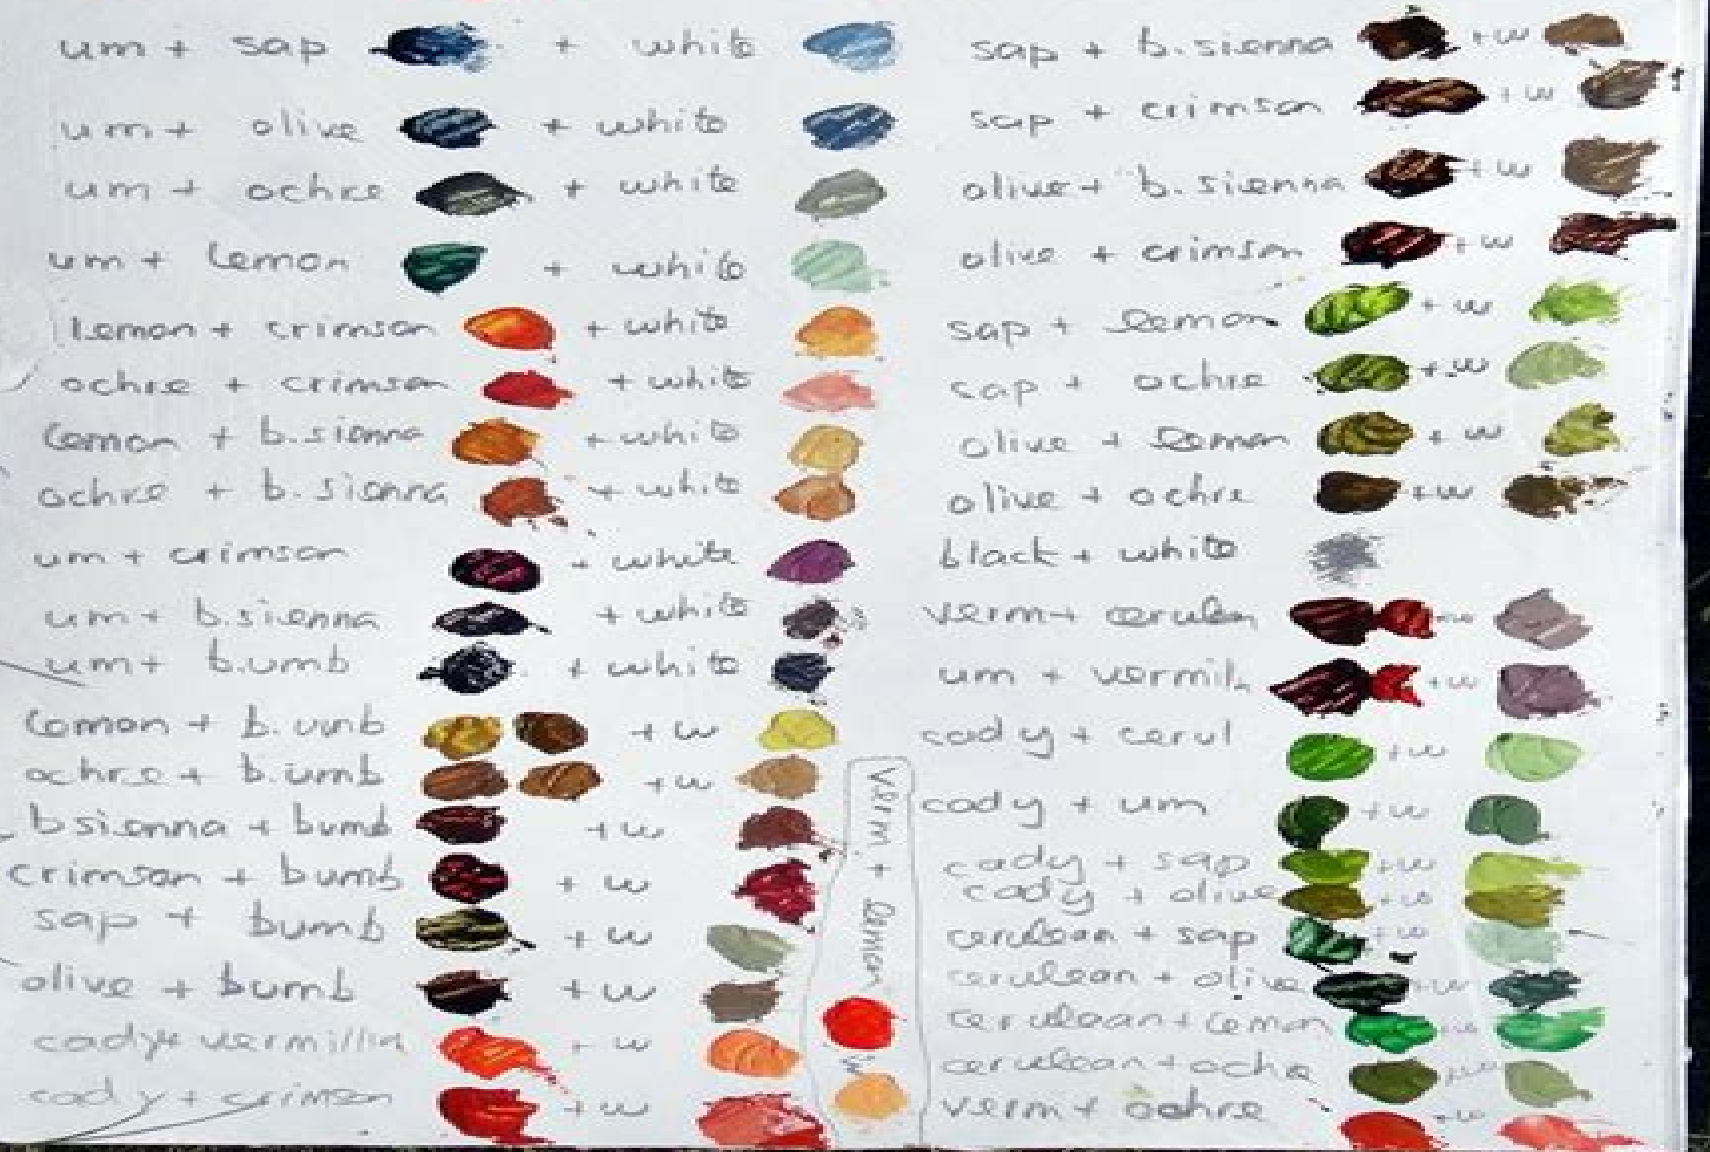 um + sap + white
um + olive + white
um + ochre + white
um + lemon + white
lemon + crimson + white
ochre + crimson + white
lemon + b.sienna + white
ochre + b.sienna + white
um + crimson + white
um + b.sienna + white
um + b.umb + white
lemon + b.umb + w
ochre + b.umb + w
bsienna + bumb + w
crimson + bumb + w
sap + bumb + w
olive + bumb + w
cady + vermillin + w
cad y + crimson + w
verm + lemon
w
sap + b.sienna + w
sap + crimson + w
olive + b.sienna + w
olive + crimson + w
sap + lemon + w
sap + ochre + w
olive + lemon + w
olive + ochre + w
black + white
verm + cerulen
um + vermil + w
cad y + cerul + w
cady + um + w
cady + sap + w
cady + olive + w
cerulean + sap + w
cerulean + olive + w
cerulean + lemon + w
cerulean + ochre + w
verm + ochre + w